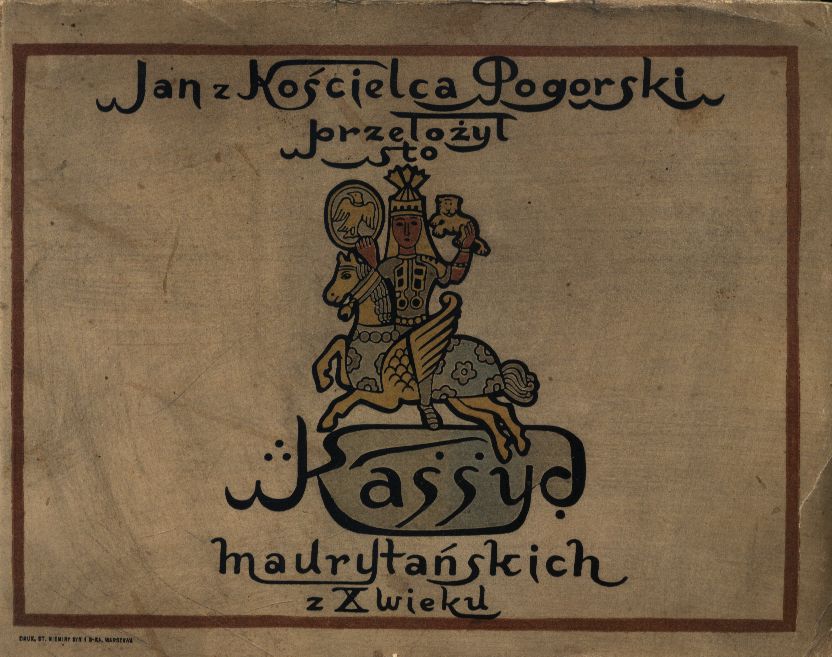 Jan z Kościelca Pogorski
przełożył
sto
Kassyd
maurytańskich
z X wieku
DRUK. ST. NIEMIRY SYN I S-KA, WARSZAWA